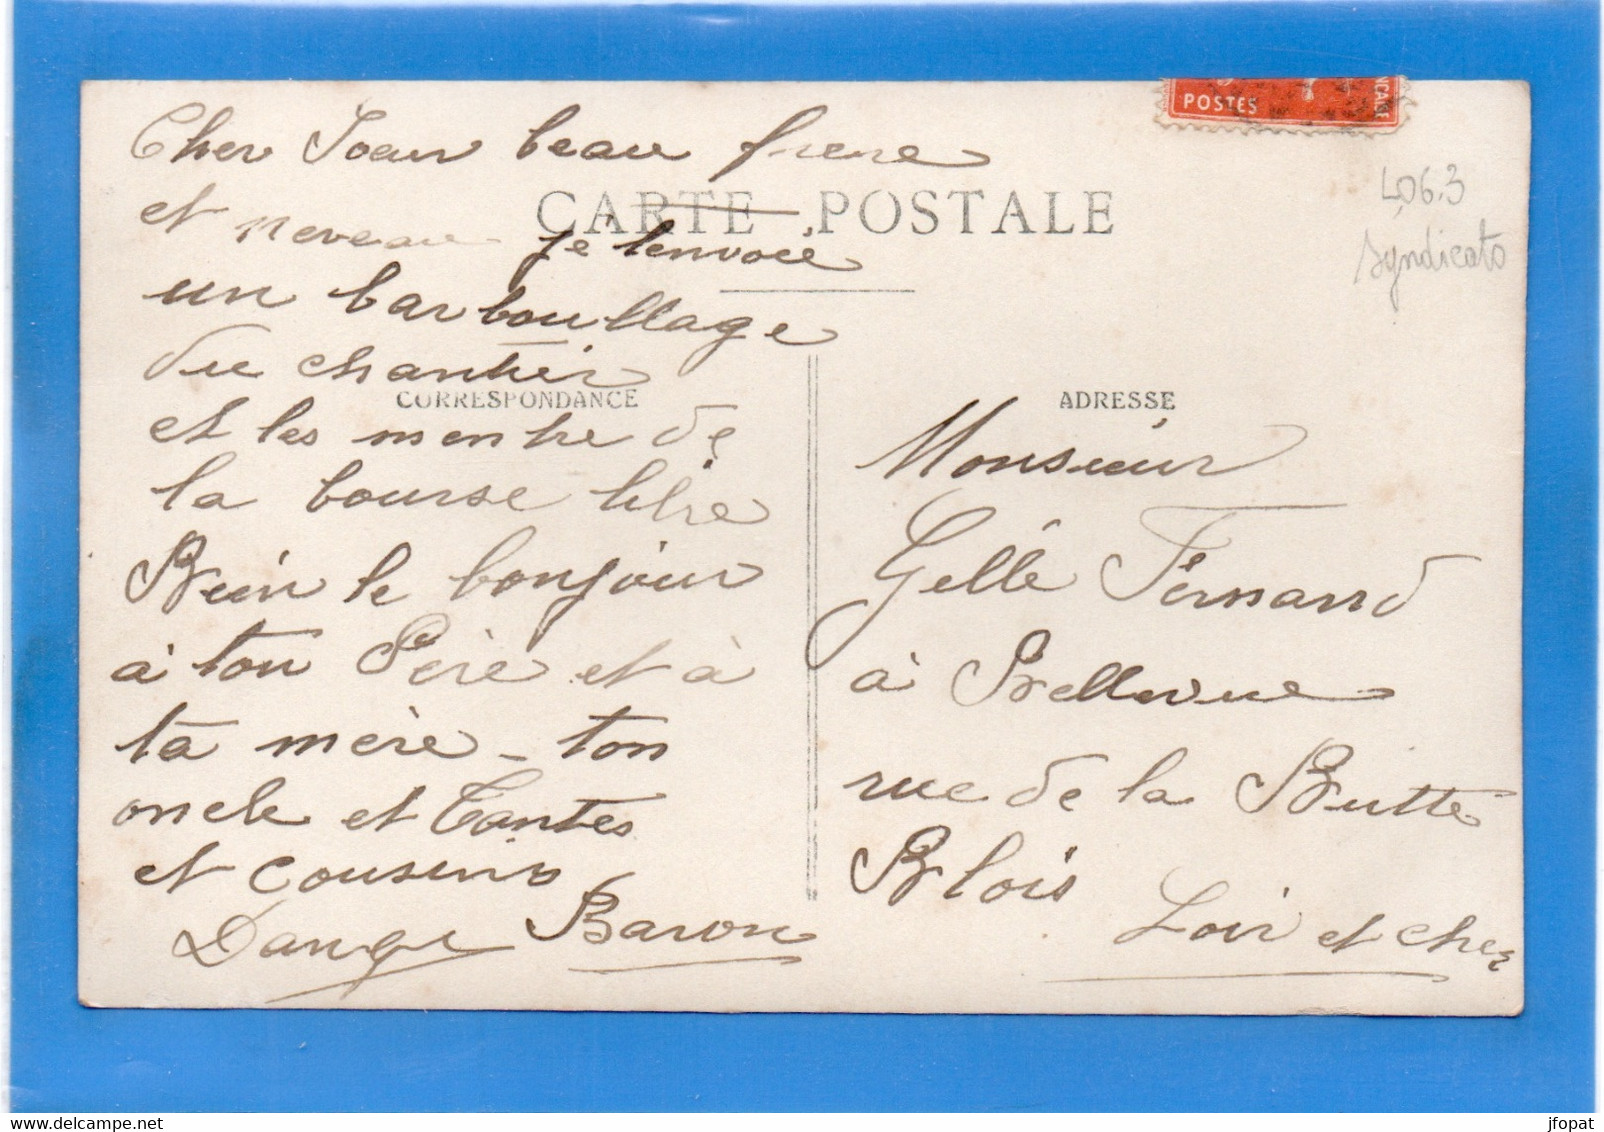 Cher Soeur beau frere
et neveau je t'envoie
un barbouillage
du chantier
et les mentre de
la bourse libre
Bien le bonjour
à ton Père et à
ta mère - ton
oncle et Tantes
et Cousins
Dange Baron
CARTE POSTALE
CORRESPONDANCE
POSTES
4063
Syndicats
ADRESSE
Monsieur
Gellé Fernand
à Bellevue
rue de la Butte
Blois
Loir et Cher
jfopat